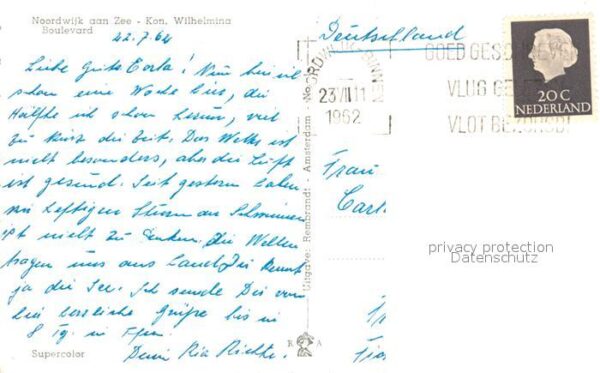 Noordwijk aan Zee - Kon. Wilhelmina
Boulevard
22.7.62
Liebe gute Carla! Nun bin ich
schon eine Woche hier, die
Hälfte ist schon herum, viel
zu kurz die Zeit. Das Wetter ist
nicht besonders, aber die Luft
ist gesund. Seit gestern haben
wir heftigen Sturm an Schwimmen
ist nicht zu denken. Die Wellen
tragen uns ans Land, Du kennst
ja die See. Ich sende Dir
herzliche Grüße bis in
8 Tg. in
Deine Ria
Supercolor
Uitgave: Rembrandt: Amsterdam
R A
Deutschland
NOORDWIJK-BINNEN
23 VII 11
1962
GOED GESCHREVEN
VLUG GE
VLOT BEZORGD!
20 C
NEDERLAND
Frau
Carl
privacy protection
Datenschutz